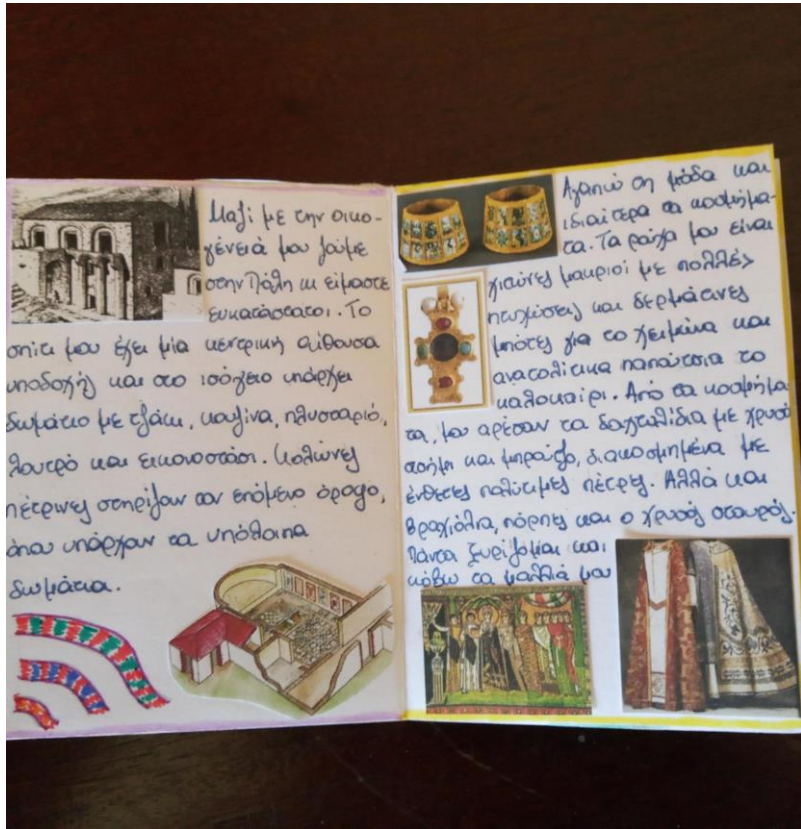 Μαζί με την οικο-
γένειά μου ζούμε
στην Πόλη κι είμαστε
ευκατάστατοι. Το
σπίτι μου έχει μία κεντρική αίθουσα
υποδοχής και στο ισόγειο υπάρχει
δωμάτιο με τζάκι, κουζίνα, πλυσταριό,
λουτρό και εικονοστάσι. Κολώνες
πέτρινες στηρίζουν τον επόμενο όροφο,
όπου υπάρχουν τα υπόλοιπα
δωμάτια.
Αγαπώ τη μόδα και
ιδιαίτερα τα κοσμήμα-
τα. Τα ρούχα μου είναι
χιτώνες μακριοί με πολλές
πτυχώσεις και δερμάτινες
μπότες για το χειμώνα και
ανατολίτικα παπούτσια το
καλοκαίρι. Από τα κοσμήμα
τα, μου αρέσουν τα δαχτυλίδια με χρυσό
ασήμι και μπρούτζο, διακοσμημένα με
ένθετες πολύτιμες πέτρες. Αλλά και
βραχιόλια, πόρπες και ο χρυσός σταυρός.
Πάντα ξυρίζομαι και
κόβω τα μαλλιά μου